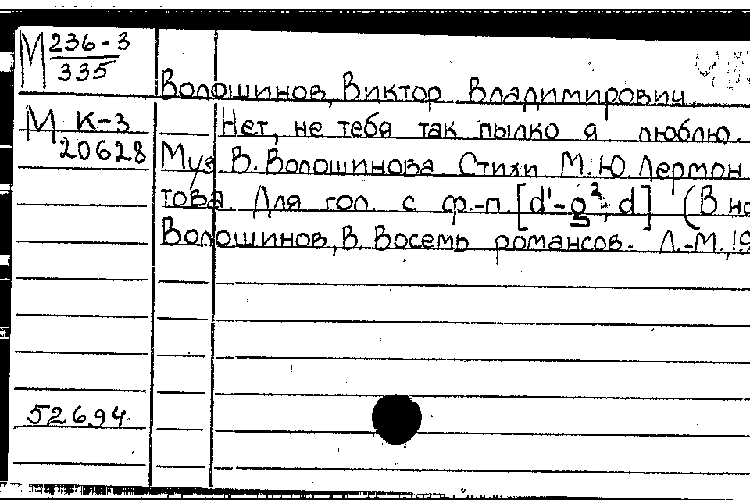 М 236-3
335
Волошинов, Виктор Владимирович
М К-3
20628
Нет, не тебя так пылко я люблю.
Муз. В. Волошинова Стихи М.Ю Лермон
това. Для гол. с ф.-п. [d'-g², d] (В
Волошинов, В. Восемь романсов. Л.-М., 19
52694